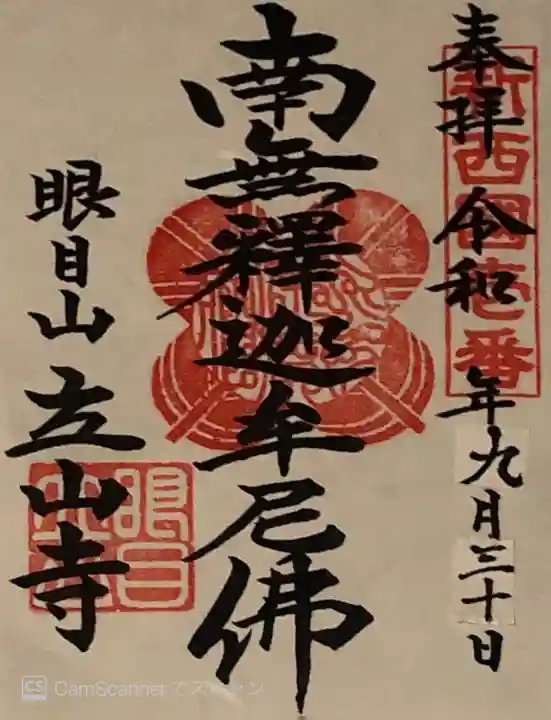 奉拝 令和 年九月三十日
新西國壱番
南無釋迦牟尼佛
眼目山立山寺
CS CamScannerでスキャン